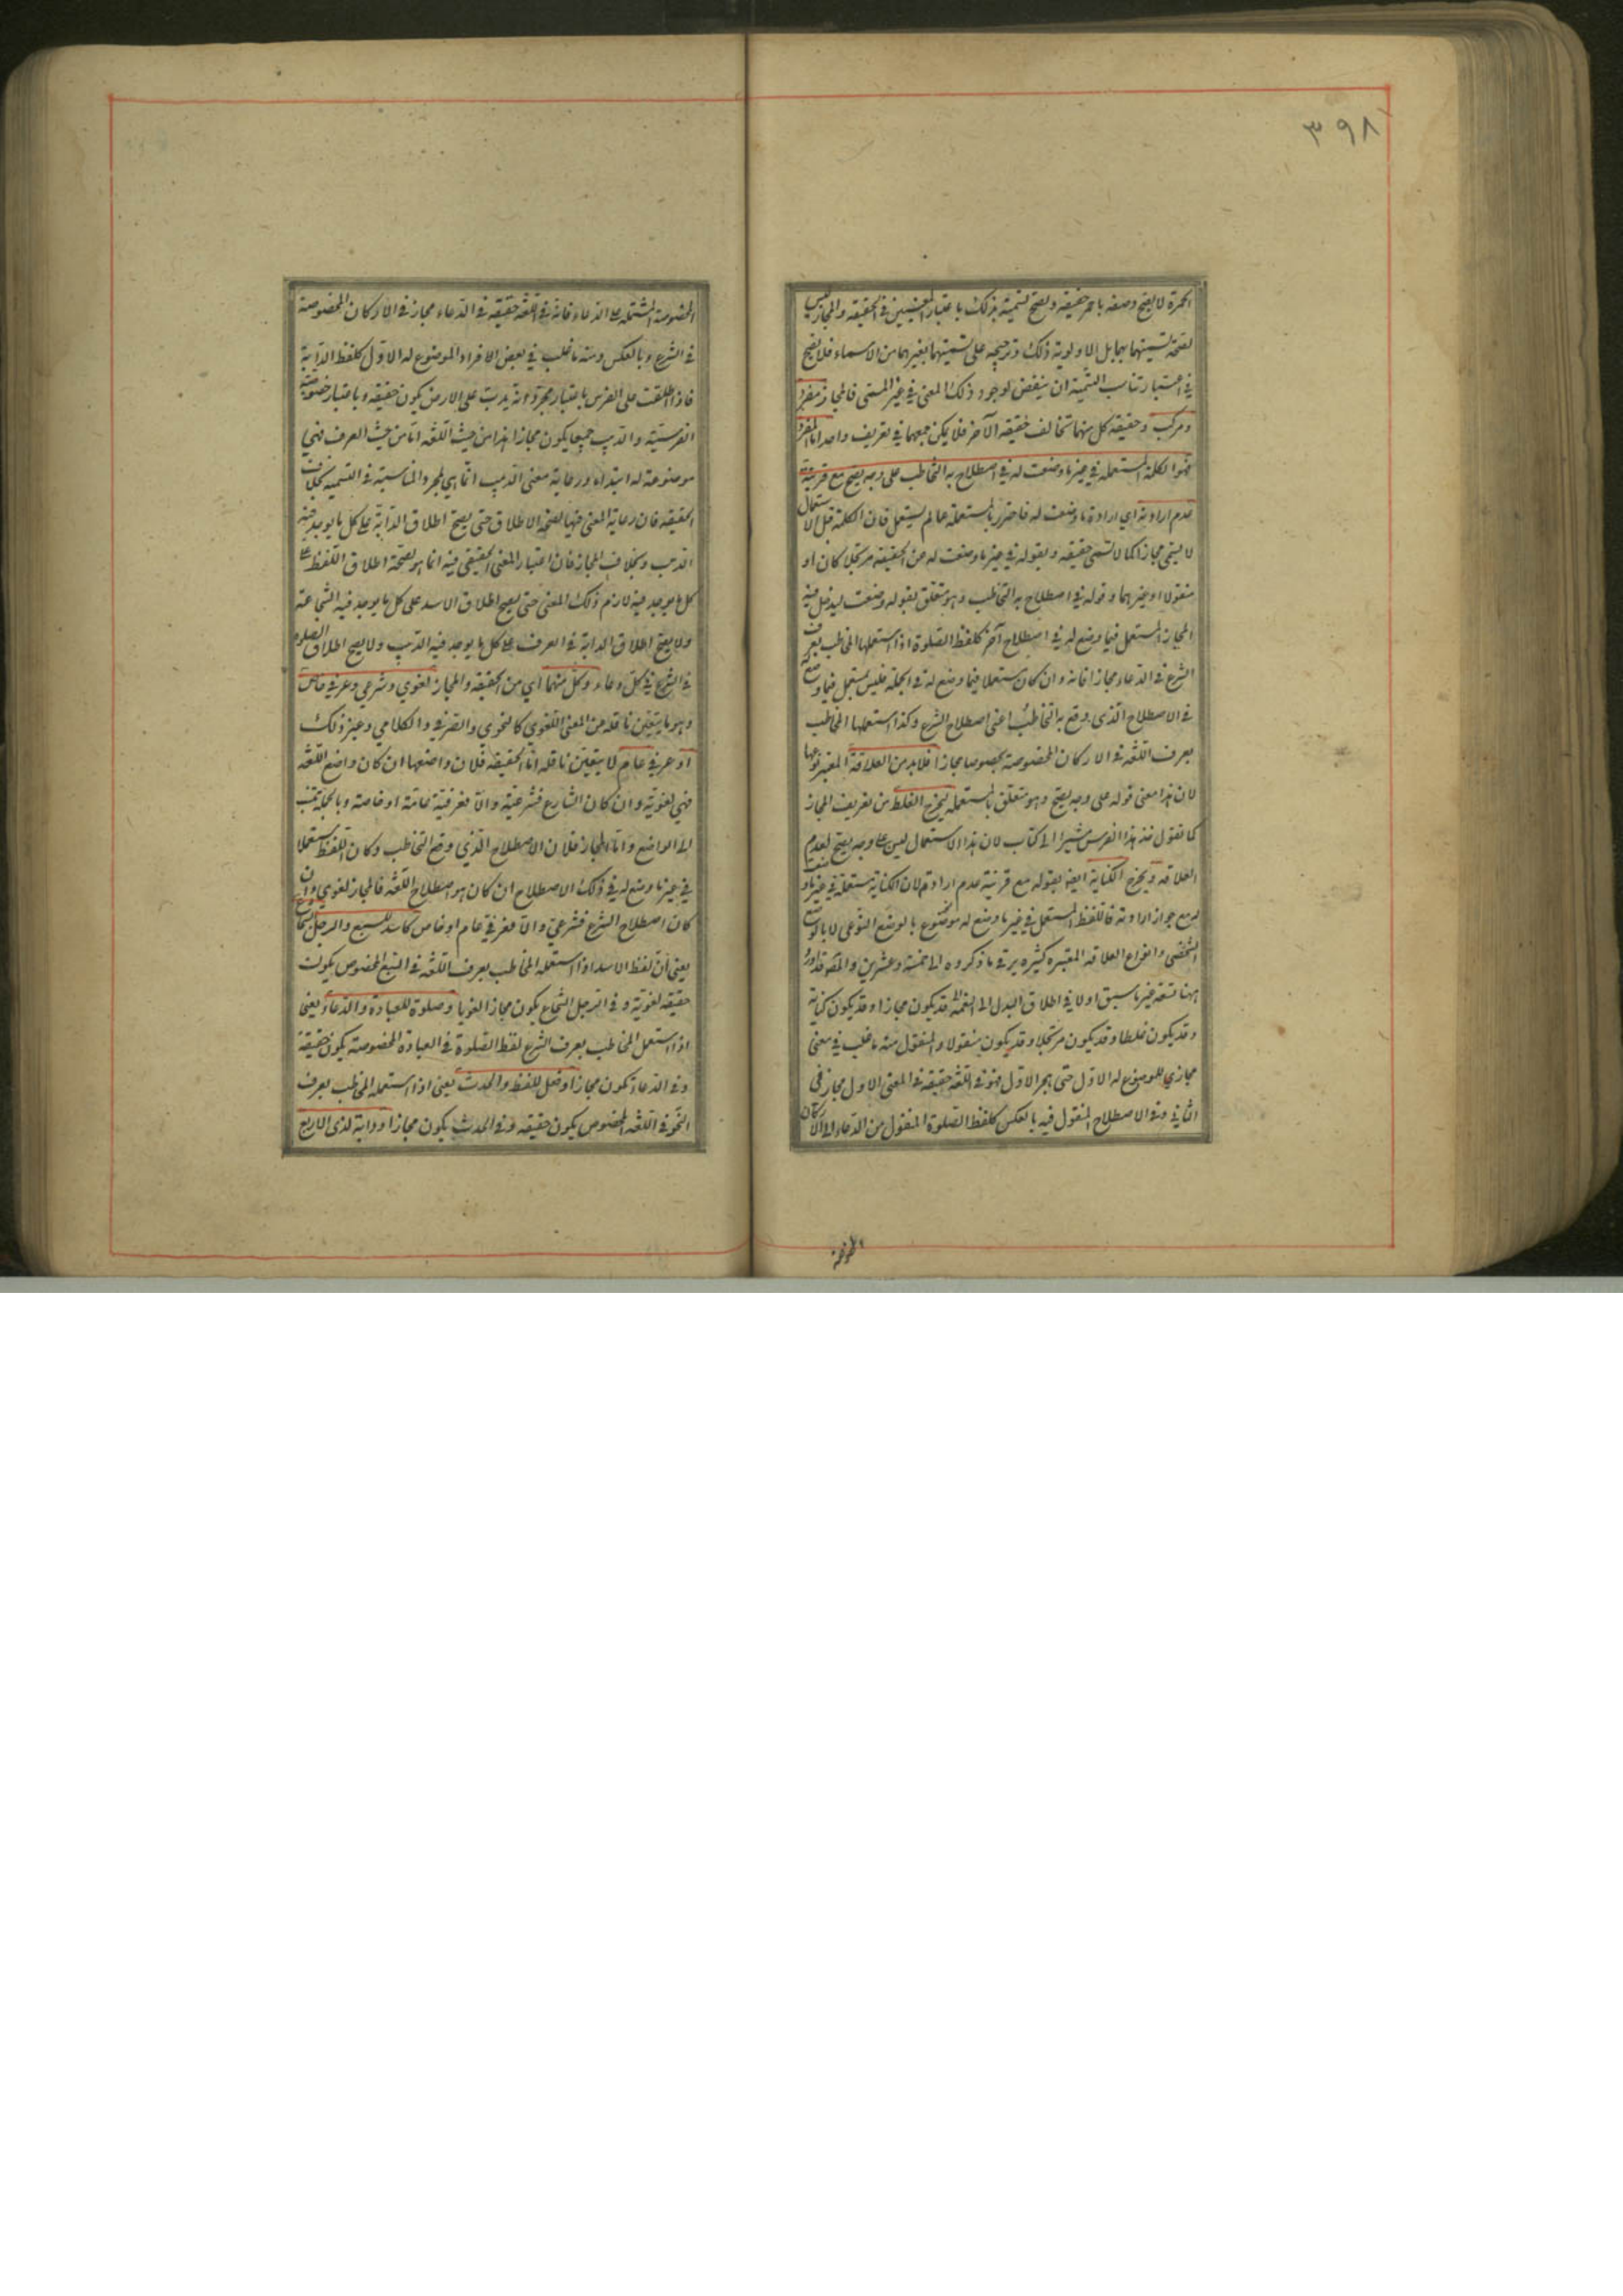 ٣٩٨
الحمرة لا يصح وصفه باحمر حقيقة ويصح تسميته بذلك باعتبار المعنيين في الحقيقة والمجاز ليس
لصحة تسميتهما بهما بل لاولوية ذلك وترجيحه على تسميتهما بغيرهما من الاسماء فلا يصح
في اعتبار تناسب التسمية ان ينقض لوجود ذلك المعنى في غير المسمى فالمجاز مفرد
ومركب وحقيقة كل منهما تخالف حقيقة الآخر فلا يمكن جمعهما في تعريف واحد اما المفرد
فهو الكلمة المستعملة في غير ما وضعت له في اصطلاح به التخاطب على وجه يصح مع قرينة
عدم ارادته اي ارادة ما وضعت له فاحترز بالمستعملة عما لم يستعمل فان الكلمة قبل الاستعمال
لا يسمى مجازا كما لا تسمى حقيقة وبقوله في غير ما وضعت له عن الحقيقة مرتجلا كان او
منقولا او غيرهما وقوله في اصطلاح به التخاطب وهو متعلق بقوله وضعت ليدخل فيه
المجاز المستعمل فيما وضع له في اصطلاح آخر كلفظ الصلوة اذا استعملها المخاطب بعرف
الشرع في الدعاء مجازا فانه وان كان مستعملا فيما وضع له في الجملة فليس بمستعمل فيما وضع له
في الاصطلاح الذي وقع به التخاطب اعنى اصطلاح الشرع وكذا استعملها المخاطب
بعرف اللغة في الاركان المخصوصة بخصوصها مجازا فلا بد من العلاقة المعتبر نوعها
لان هذا معنى قوله على وجه يصح وهو متعلق بالمستعملة ليخرج الغلط من تعريف المجاز
كما تقول خذ هذا الفرس مشيرا الى كتاب لان هذا الاستعمال ليس على وجه يصح لعدم
العلاقة ويخرج الكناية ايضا بقوله مع قرينة عدم ارادته لان الكناية مستعملة في غير ما وضعت
له مع جواز ارادته فاللفظ المستعمل في غير ما وضع له موضوع بالوضع النوعي لا بالوضع
الشخصى وانواع العلاقة المعتبرة كثيرة يرتقي ما ذكروه الى خمسة وعشرين والمصـ قد اورد
ههنا تسعة غير ما سبق اولا في اطلاق اليد الى النعمة قد يكون مجازا وقد يكون كناية
وقد يكون غلطا وقد يكون مرتجلا وقد يكون منقولا والمنقول منه ما غلب في معنى
مجازي للموضوع له الاول حتى هجر الاول فهو في اللغة حقيقة في المعنى الاول مجاز في
الثاني وفي الاصطلاح المنقول فيه بالعكس كلفظ الصلوة المنقول من الدعاء الى الاركان
المخصوصة المشتملة على الدعاء فانه في اللغة حقيقة في الدعاء مجاز في الاركان المخصوصة
في الشرع وبالعكس ومنه ما غلب في بعض الافراد الموضوع له الاول كلفظ الدابة
فاذا اطلقت على الفرس باعتبار مجرد انه يدب على الارض يكون حقيقة وباعتبار خصوصية
الفرسية والدب جميعا يكون مجازا هذا من حيث اللغة اما من حيث العرف فهي
موضوعة له ابتداء ورعاية معنى الدبيب انما هي لمجرد المناسبة في التسمية بخلاف
الحقيقة فان رعاية المعنى فيها لصحة الاطلاق حتى يصح اطلاق الدابة على كل ما يوجد فيه
الدب وبخلاف المجاز فان اعتبار المعنى الحقيقي فيه انما هو لصحة اطلاق اللفظ على
كل ما يوجد فيه لازم ذلك المعنى حتى يصح اطلاق الاسد على كل ما يوجد فيه الشجاعة
ولا يصح اطلاق الدابة في العرف على كل ما يوجد فيه الدبيب ولا يصح اطلاق الصلوة
في الشرع في كل دعاء وكل منهما اي من الحقيقة والمجاز لغوي وشرعي وعرفي خاص
وهو ما يتعين ناقله عن المعنى اللغوي كالنحوى والصرفي والكلامي وغير ذلك
او عرفي عام لا يتعين ناقله اما الحقيقة فلان واضعها ان كان واضع اللغة
فهي لغوية وان كان الشارع فشرعية والا فعرفية عامة او خاصة وبالجملة تنسب
الى الواضع واما المجاز فلان الاصطلاح الذي وقع التخاطب وكان اللفظ مستعملا
في غير ما وضع له في ذلك الاصطلاح ان كان هو اصطلاح اللغة فالمجاز لغوي وان
كان اصطلاح الشرع فشرعي والا فعرفي عام او خاص كاسد للسبع والرجل الشجاع
يعنى ان لفظ الاسد اذا استعمله المخاطب بعرف اللغة في السبع المخصوص يكون
حقيقة لغوية وفي الرجل الشجاع يكون مجازا لغويا وصلوة للعبادة والدعاء يعنى
اذا استعمل المخاطب بعرف الشرع لفظ الصلوة في العبادة المخصوصة يكون حقيقة
وفي الدعاء تكون مجازا وفعل للفظ والحدث يعنى اذا استعمله المخاطب بعرف
النحو في اللفظ المخصوص يكون حقيقة وفي الحدث يكون مجازا ودابة لذى الاربع